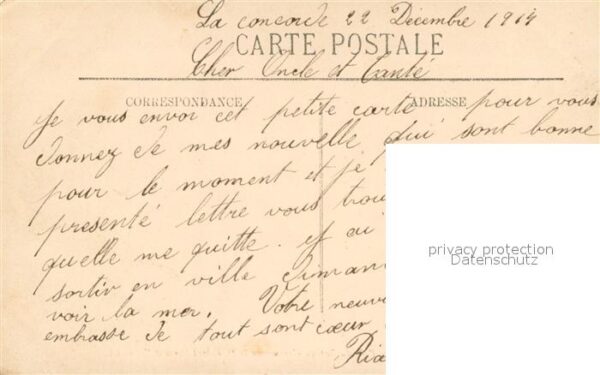 La concorde 22 Décembre 1914
CARTE POSTALE
Cher Oncle et Tante
CORRESPONDANCE ADRESSE
Je vous envoi cet petite carte pour vous
donnez de mes nouvelle qui sont bonne
pour le moment et je
presenté lettre vous
quelle me quitte. ef ai
sortir en ville
voir la mer. Votre
embrasse de tout sont cœur
privacy protection
Datenschutz